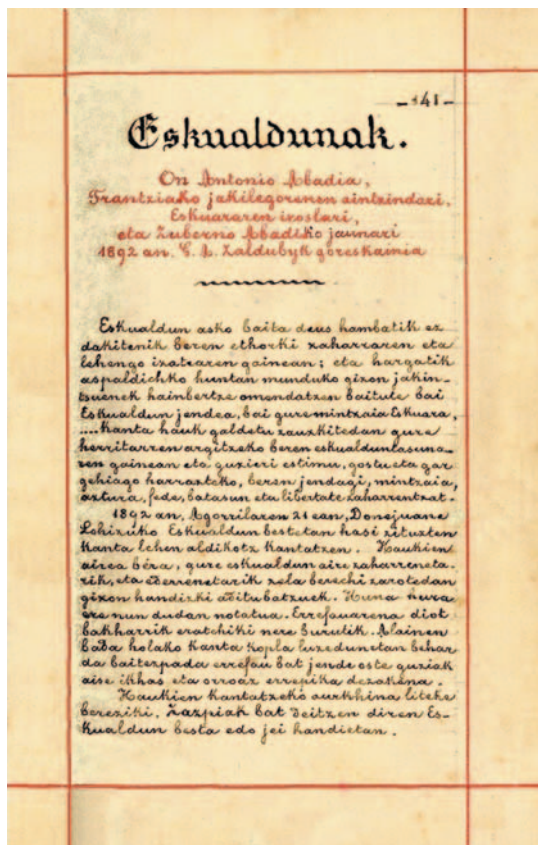 -141-
Eskualdunak.
On Antonio Abadia,
Frantziako jakilegorenen aintzindari,
Eskuararen iroslari,
eta Zuberno Abadiko jaunari
1892 an. G. A. Zaldubyk goreskainia
Eskualdun asko baita deus hambatik ez
dakitenik beren ethorki zaharraren eta
lehengo izatearen gainean; eta hargatik
aspaldichko huntan munduko gizon jakin-
tsuenek hainbertze omendatzen baitute bai
Eskualdun jendea, bai gure mintzaia Eskuara,
.... Kanta hauk galdetu zauzkitedan gure
herritarren argitzeko beren eskualduntasuna-
ren gainean eta guzieri estimu, gostu eta gar
gehiago harrarazteko, beren jendagi, mintzaia,
aztura, fede, batasun eta libertate zaharrentzat.
1892 an, Agorrilaren 21 ean, Donejuane
Lohizuko Eskualdun bestetan hasi zituzten
kanta lehen aldikotz kantatzen. Haukien
airea bera, gure eskualdun aire zaharreneta.
rik, eta ederrenetarik zela berechi zarotedan
gizon handizki aditu batzuek. Huna nura
ere nun dudan notatua. Errefauarena diot
bakharrik eratchiki nere burutik. Alainen
bada holako kanta kopla luzedunetan behar
da baiterpada errefau bat jende oste guziak
aise ikhas eta orroaz errepika dezakena.
Haukien kantatzeko aurkhina liteke
bereziki, Zazpiak bat deitzen diren Es-
kualdun besta edo jei handietan.